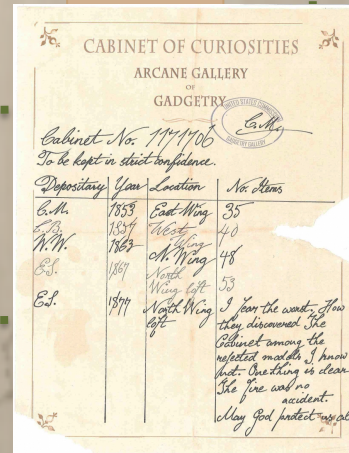 CABINET OF CURIOSITIES
ARCANE GALLERY
OF
GADGETRY
UNITED STATES
GALLERY
C.M.
Cabinet No. 1171706
To be kept in strict confidence.
Depositary Year Location No. Items
C.M. 1853 East Wing 35
1857 West Wing 40
W.W. 1863 N. Wing 48
E.S. 1867 North Wing loft 53
E.S. 1877 North Wing loft
I fear the worst. How
they discovered The
Cabinet among the
rejected models I know
not. One thing is clear
The fire was no
accident.
May God protect us all